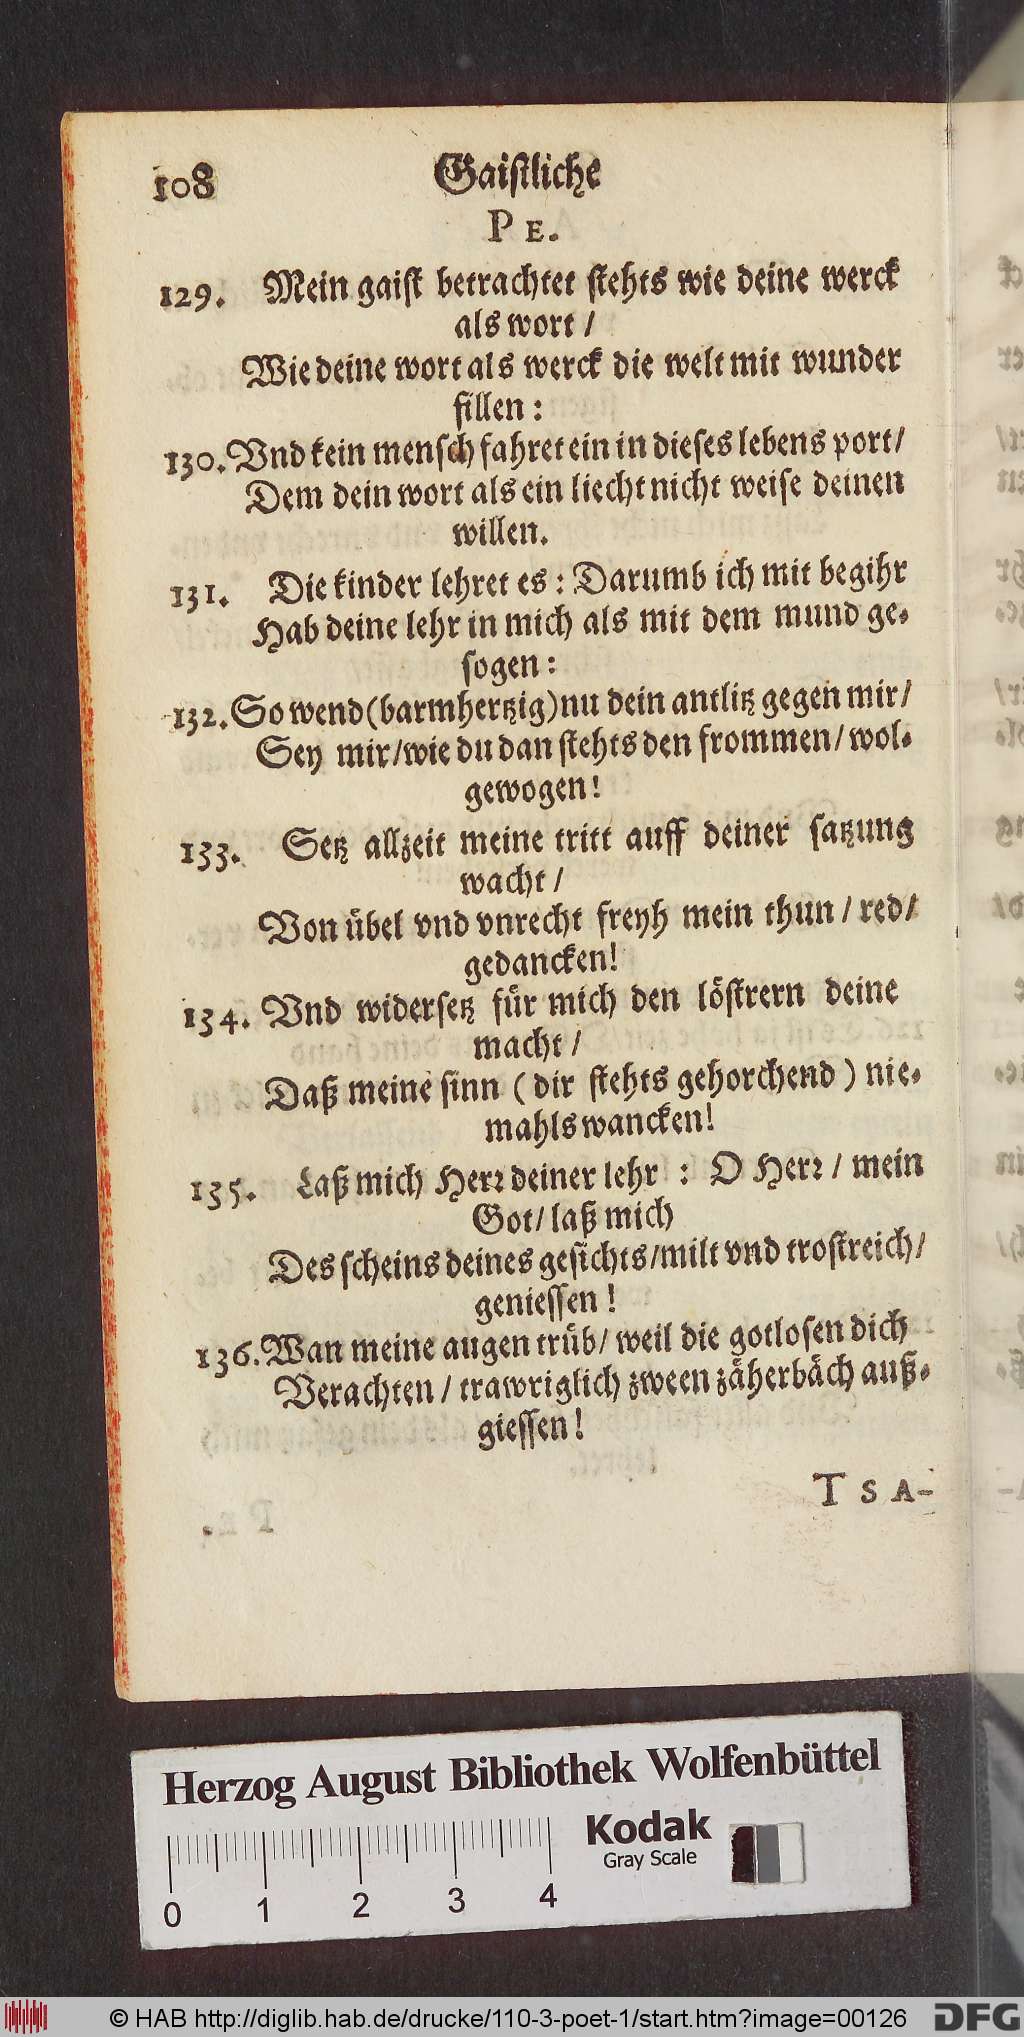 108 Gaistliche
PE.
129. Mein gaist betrachtet stehts wie deine werck
als wort /
Wie deine wort als werck die welt mit wunder
fillen :
130. Vnd kein mensch fahret ein in dieses lebens port/
Dem dein wort als ein liecht nicht weise deinen
willen.
131. Die kinder lehret es : Darumb ich mit begihr
Hab deine lehr in mich als mit dem mund ge-
sogen :
132. So wend (barmhertzig) nu dein antlitz gegen mir/
Sey mir/wie du dan stehts den frommen/ wol-
gewogen!
133. Setz allzeit meine tritt auff deiner satzung
wacht /
Von übel vnd vnrecht freyh mein thun / red/
gedancken!
134. Vnd widersetz für mich den löstrern deine
macht /
Daß meine sinn ( dir stehts gehorchend ) nie-
mahls wancken!
135. Laß mich Herr deiner lehr : O Herr / mein
Got/ laß mich
Des scheins deines gesichts/milt vnd trostreich/
geniessen !
136. Wan meine augen trüb/ weil die gotlosen dich
Verachten / trawriglich zween zäherbäch auß-
giessen!
TSA-
Herzog August Bibliothek Wolfenbüttel
Kodak
Gray Scale
0 1 2 3 4
© HAB http://diglib.hab.de/drucke/110-3-poet-1/start.htm?image=00126
DFG